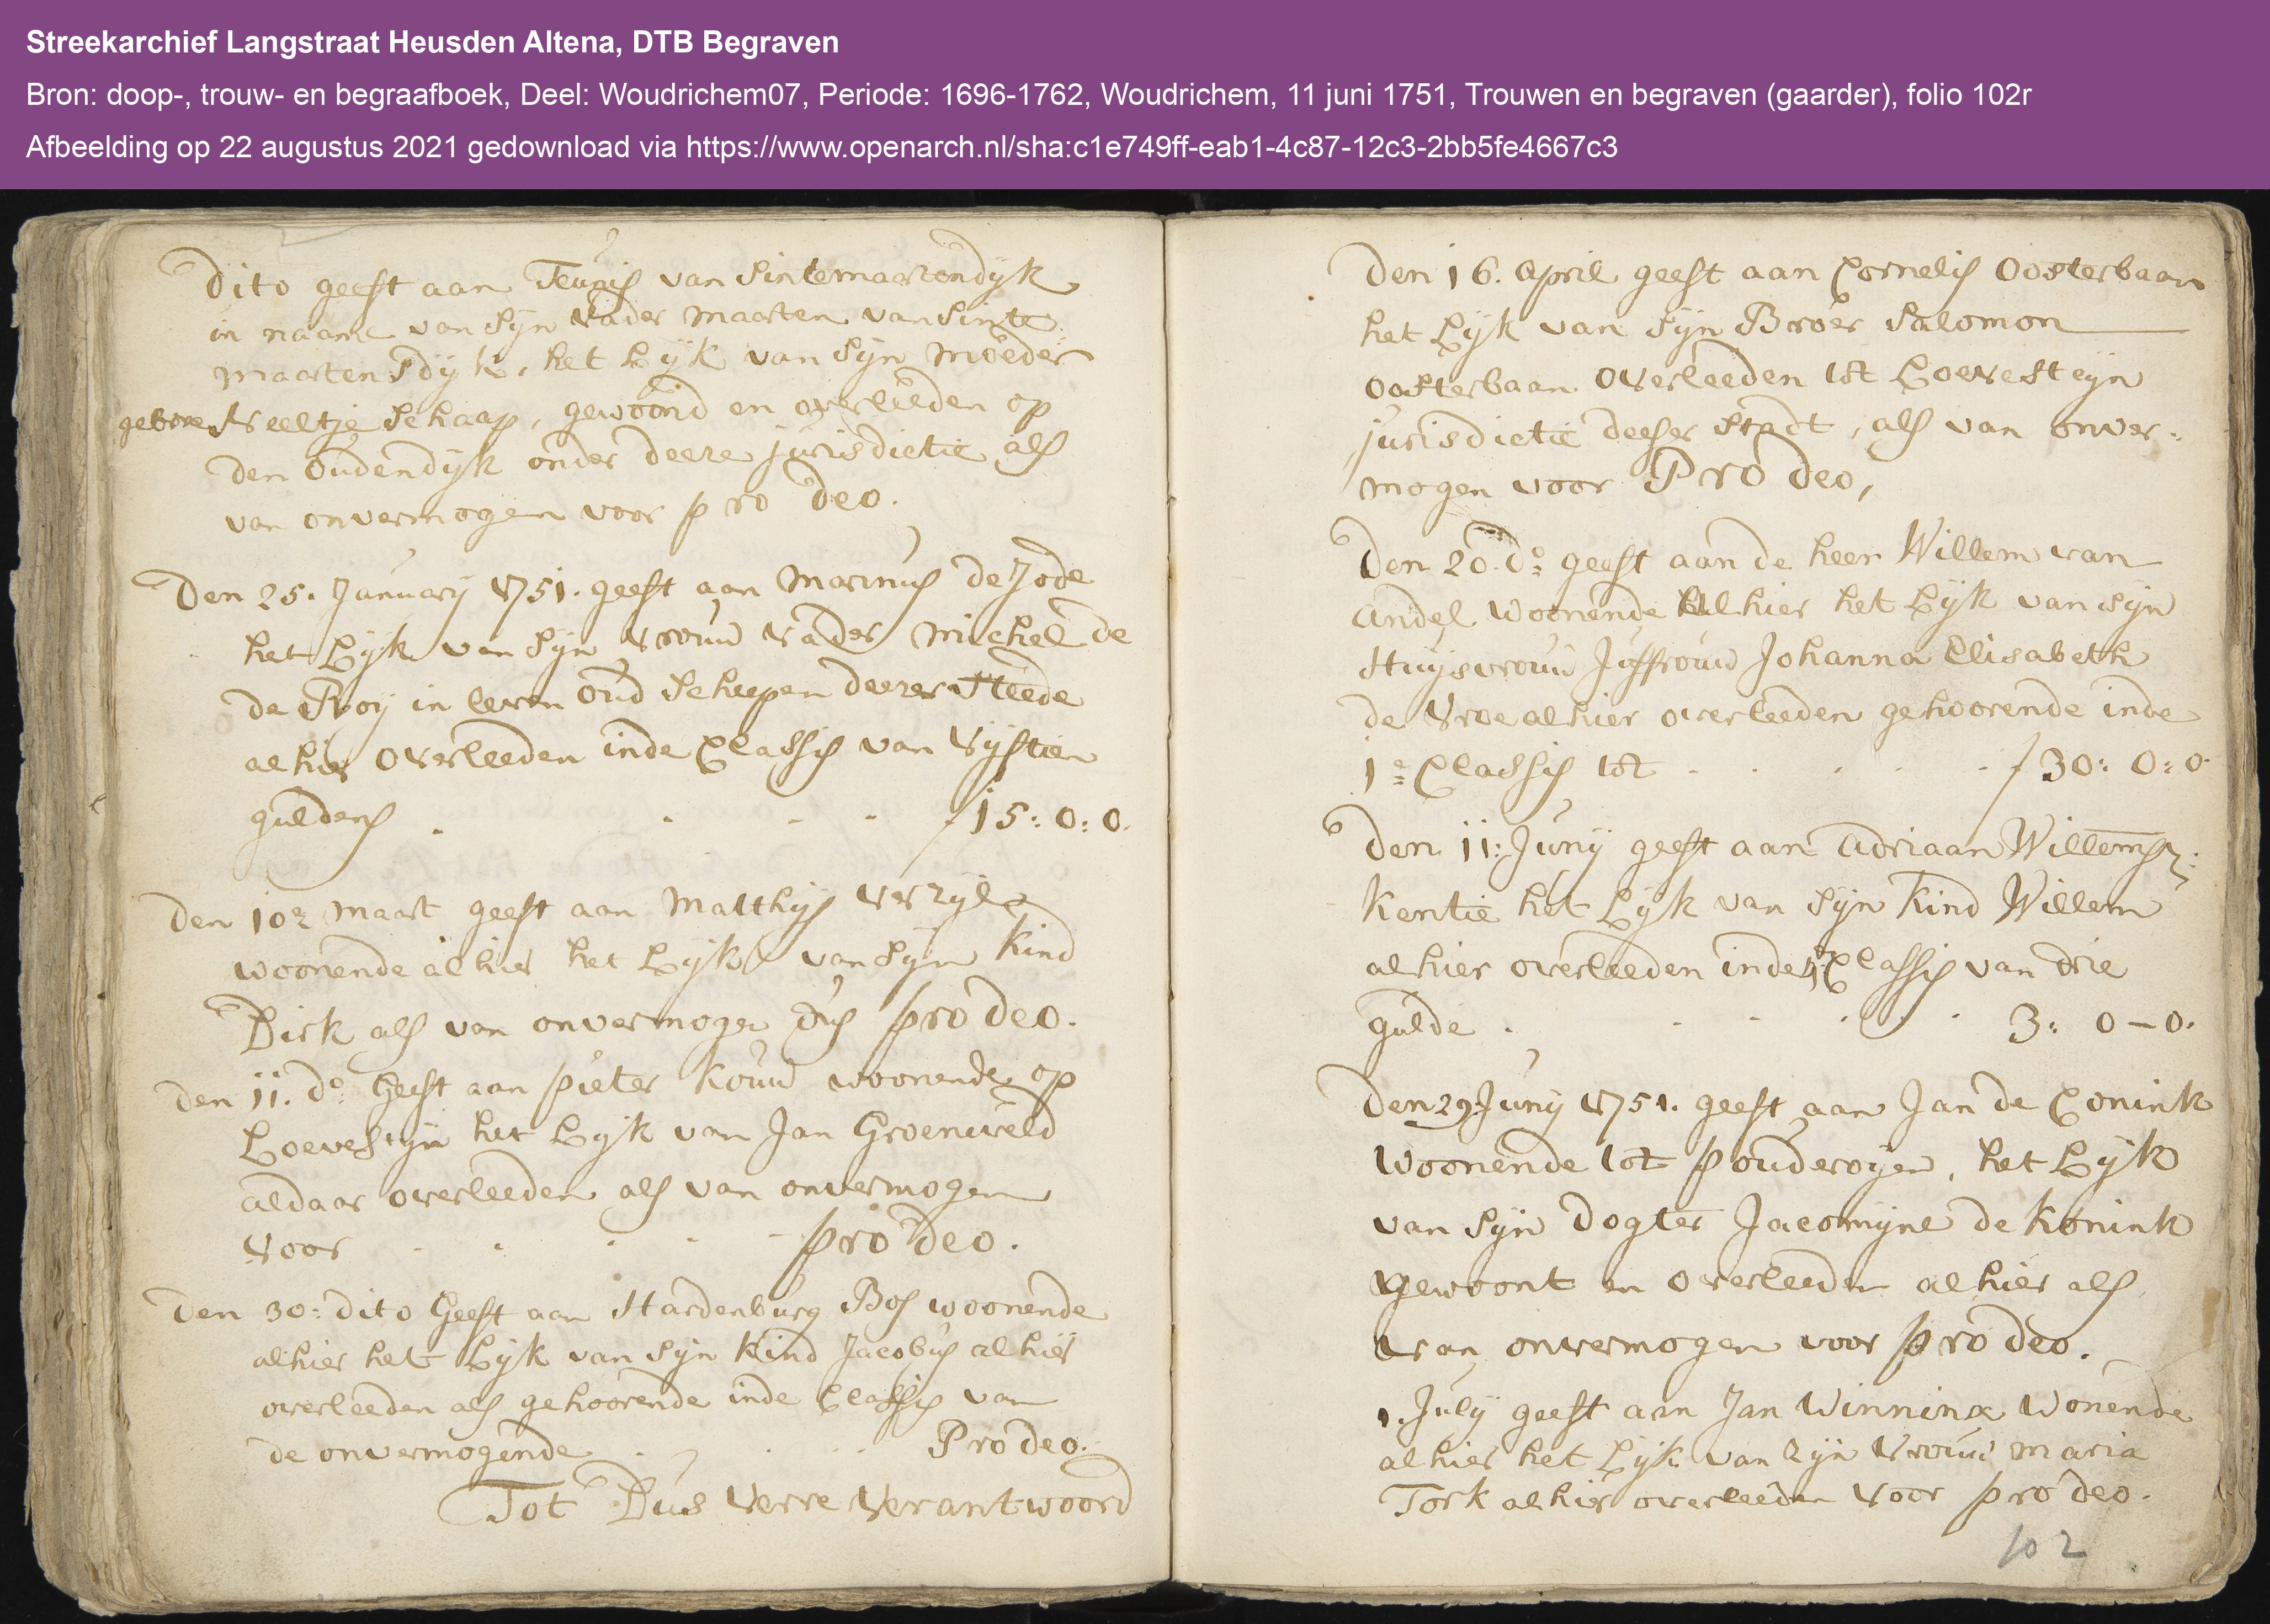 Streekarchief Langstraat Heusden Altena, DTB Begraven
Bron: doop-, trouw- en begraafboek, Deel: Woudrichem07, Periode: 1696-1762, Woudrichem, 11 juni 1751, Trouwen en begraven (gaarder), folio 102r
Afbeelding op 22 augustus 2021 gedownload via https://www.openarch.nl/sha:c1e749ff-eab1-4c87-12c3-2bb5fe4667c3
Dito geeft aan Teunis van Sintemaartendijk
in naame van Sijn Vader Maarten van Sinte
maartensdijk, het Lijk van Sijn Moeder
geboren Neeltje Schaap, gewoond en overleeden op
den Oudendijk onder deeze jurisdictie als
van onvermogen voor pro deo.
Den 25. January 1751. geeft aan Marinus de Jode
het Lijk van Sijn Vrouw Vader Michel de
de Roy in leven Oud Scheepen deezer Steede
alhier Overleeden inde Classis van Vijftien
guldens f 15:0:0.
Den 10e Maart geeft aan Matthijs Verzijl
woonende alhier het Lijk van Sijn Kind
Dirk als van onvermogen dus pro deo.
Den 11. do. Geeft aan pieter Kouw woonende op
Loevestijn het Lijk van Jan Groeneveld
aldaar overleeden als van onvermogen
Voor pro deo.
Den 30: dito Geeft aan Hardenburg Bos woonende
alhier het Lijk van Sijn Kind Jacobus alhier
overleeden als gehoorende inde Classis van
de onvermogende Pro deo.
Tot Dus Verre Verantwoord
Den 16. April geeft aan Cornelis Oosterbaan
het Lijk van Sijn Broer Salomon
Oosterbaan Overleeden tot Loevesteijn
jurisdictie deeser Stadt, als van onver-
mogen voor Pro deo,
Den 20. do: geeft aan de heer Willem van
Andel Woonende alhier het Lijk van Sijn
Huysvrouw Juffrouw Johanna Elisabeth
de Vroe alhier overleeden gehoorende inde
1e Classis tot f 30:0:0.
Den 11: Juny geeft aan Adriaan Willemsz:
Kentie het Lijk van Sijn Kind Willem
alhier overleeden inde 4e Classis van drie
gulde 3: 0-0.
Den 29 Juny 1751. geeft aan Jan de Conink
Woonende tot pouderoyen, het Lijk
van Sijn Dogter Jacomijne de Konink
gewoont en overleeden alhier als
van onvermogen voor pro deo.
1. July geeft aan Jan Winninx Wonende
alhier het Lijk van Zijn Vrouw Maria
Tork alhier overleeden Voor pro deo.
102